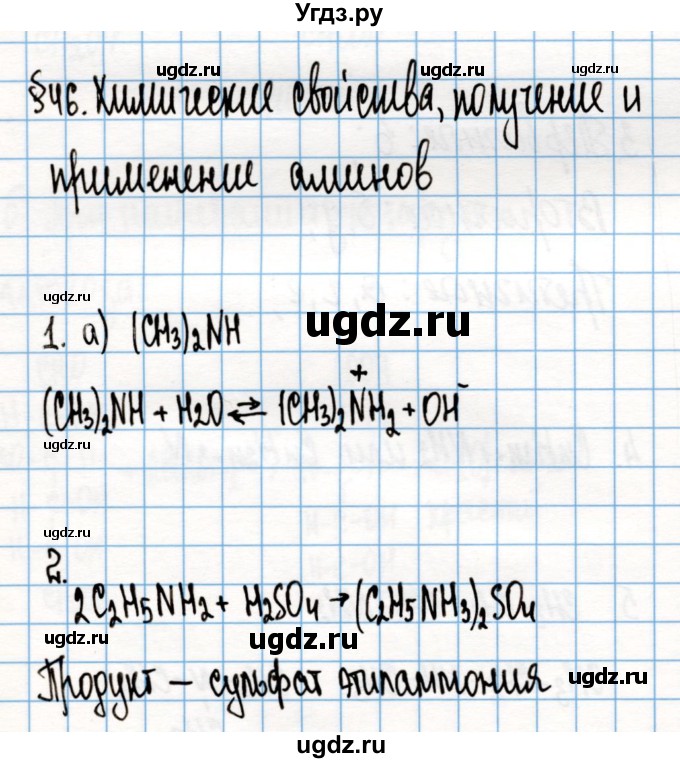 Угдз.ру
ugdz.ru ugdz.ru ugdz.ru
§46. Химические свойства, получение и
применение аминов
ugdz.ru ugdz.ru
ugdz.ru
1. а) (CH₃)₂NH
ugdz.ru
(CH₃)₂NH + H₂O ⇄ (CH₃)₂N⁺H₂ + OH⁻
ugdz.ru ugdz.ru
ugdz.ru
2.
2C₂H₅NH₂ + H₂SO₄ → (C₂H₅NH₃)₂SO₄
ugdz.ru
Продукт – сульфат этиламмония
ugdz.ru ugdz.ru
ugdz.ru